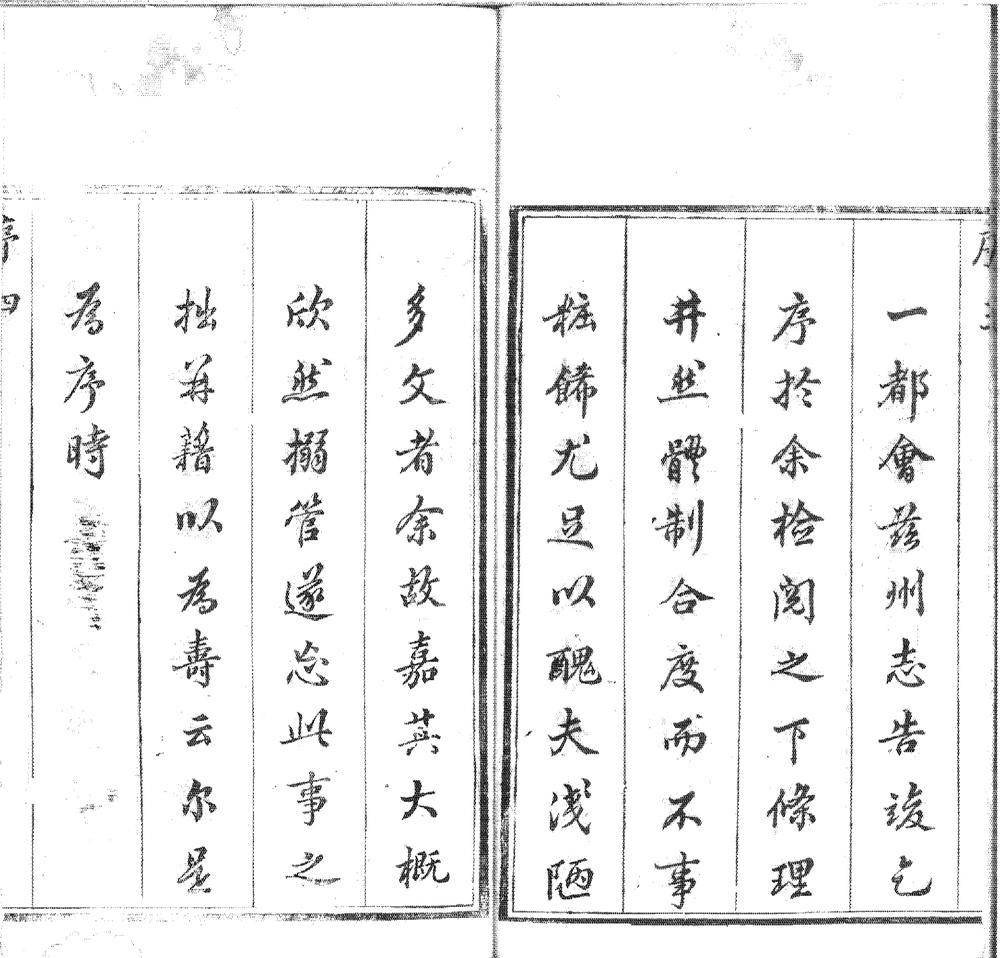 一都會茲州志告竣乞
序扵余检閱之下條理
井然體制合度而不事
粧餙尤足以醜夫淺陋
多文者余故嘉其大概
欣然搦管遂忘此事之
拙并藉以為壽云尔是
為序時
序四